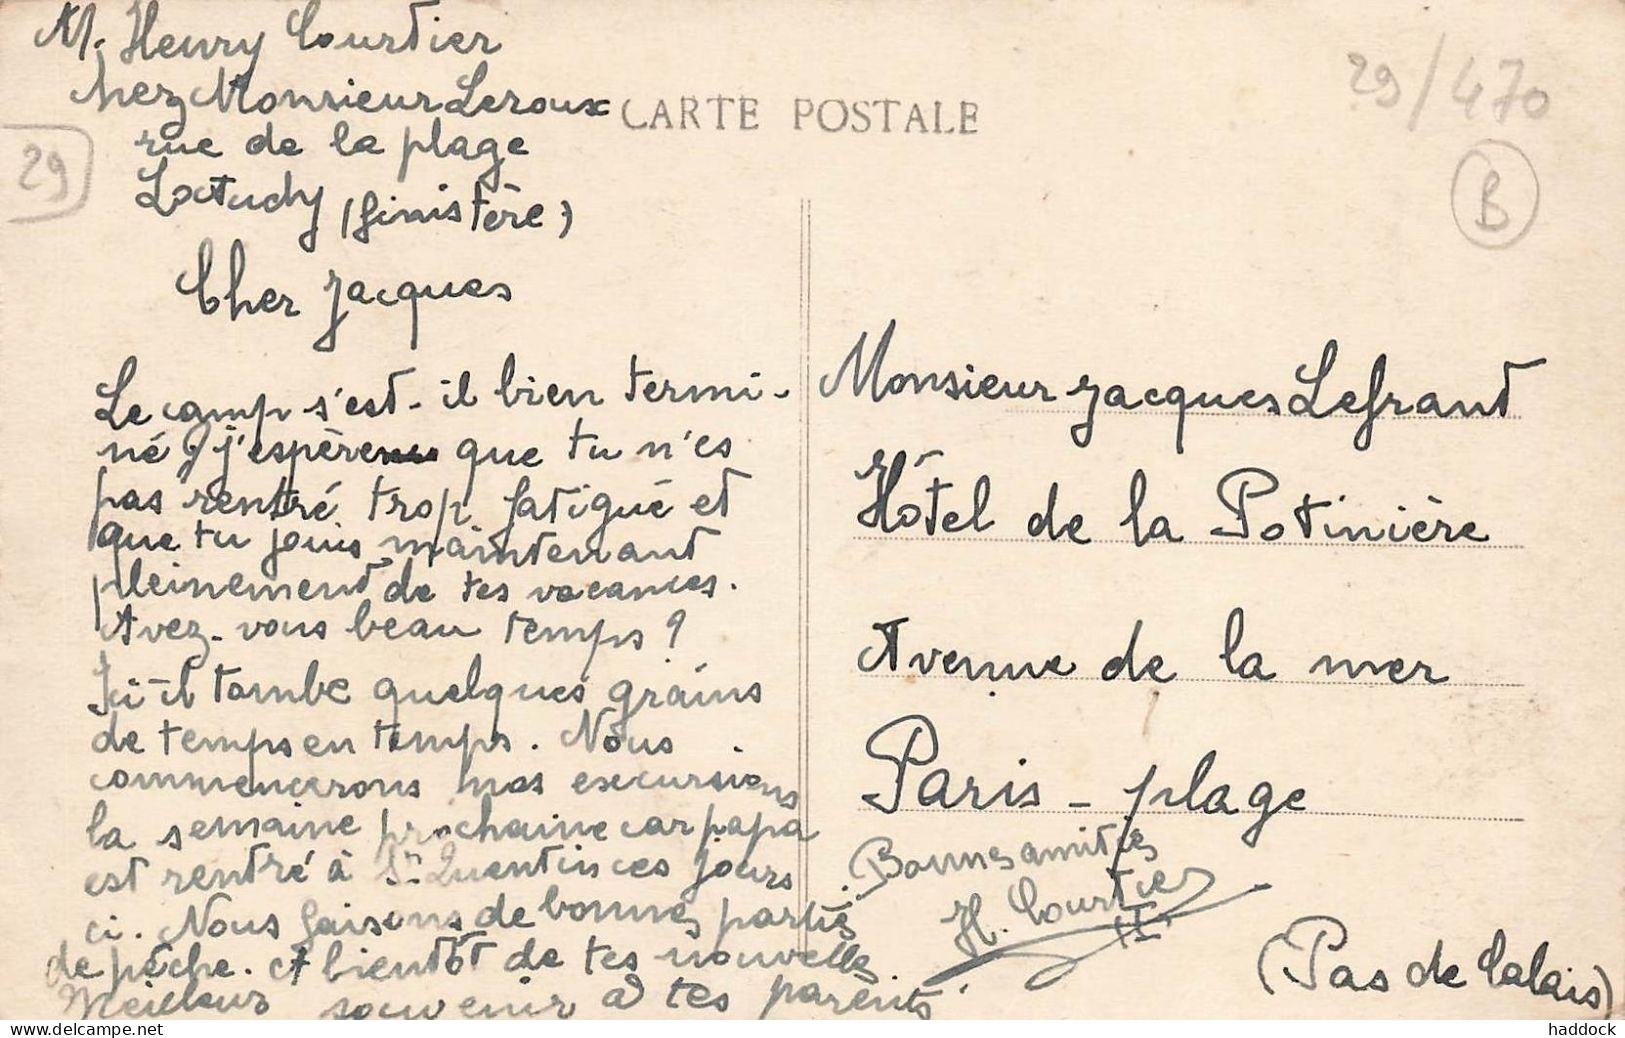 M. Henry Courtier
chez Monsieur Leroux
rue de la plage
Loctudy (finistère)
CARTE POSTALE
29/470
29
B
Cher Jacques
Le camp s'est-il bien termi-
né ? j'espère que tu n'es
pas rentré trop fatigué et
que tu jouis maintenant
pleinement de tes vacances.
Avez-vous beau temps ?
Ici il tombe quelques grains
de temps en temps. Nous
commencerons nos excursions
la semaine prochaine car papa
est rentré à St Quentin ces jours
ci. Nous faisons de bonnes parties
de pêche. A bientôt de tes nouvelles.
Meilleur souvenir à tes parents.
Monsieur Jacques Lefrant
Hôtel de la Potinière
Avenue de la mer
Paris-plage
(Pas de Calais)
Bonnes amitiés
H. Courtier
haddock